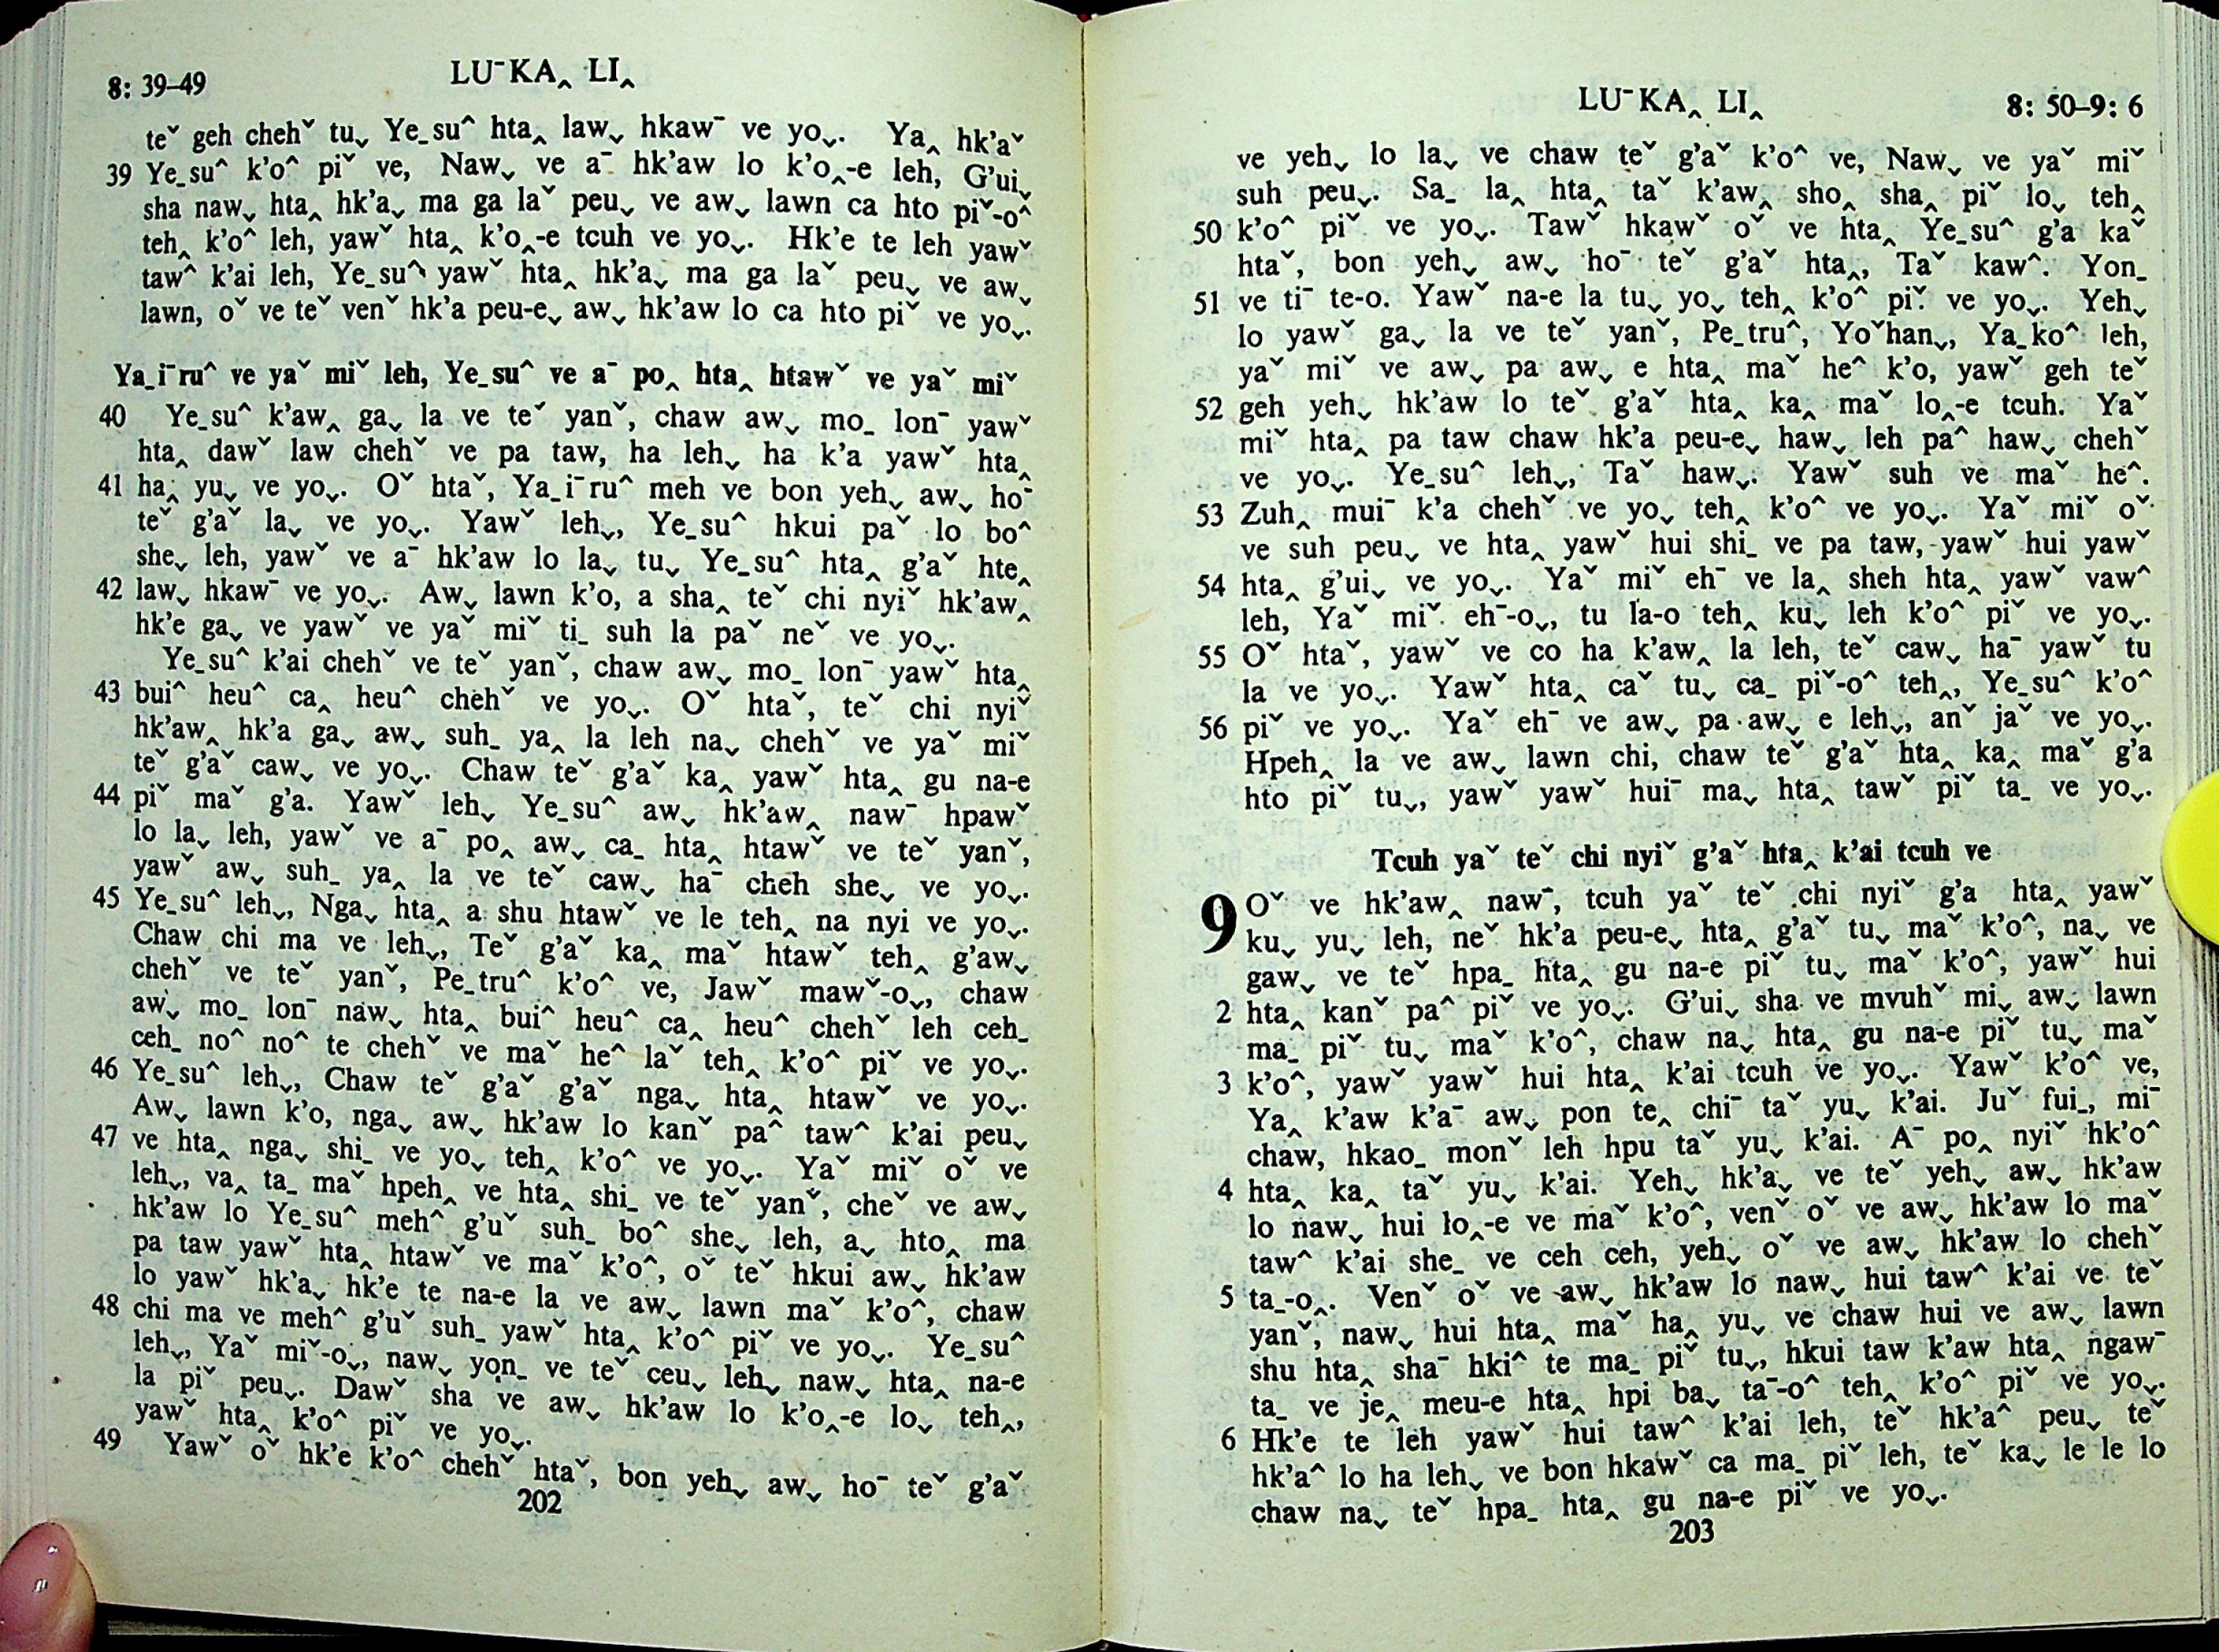 8: 39–49
LUˉKAꞈ LIꞈ
teˇ geh chehˇ tuˬ Ye_suˆ htaꞈ lawˬ hkawˉ ve yoˬ. Yaꞈ hk'aˇ
39 Ye_suˆ k'oˆ piˇ ve, Nawˬ ve aˉ hk'aw lo k'oꞈ-e leh, G'uiˬ
sha nawˬ htaꞈ hk'aˬ ma ga laˇ peuˬ ve awˬ lawn ca hto piˇ-oˆ
tehꞈ k'oˆ leh, yawˇ htaꞈ k'oꞈ-e tcuh ve yoˬ. Hk'e te leh yawˇ
tawˆ k'ai leh, Ye_suˆ yawˇ htaꞈ hk'aˬ ma ga laˇ peuˬ ve awˬ
lawn, oˇ ve teˇ venˇ hk'a peu-eˬ awˬ hk'aw lo ca hto piˇ ve yoˬ.
Ya_iˉruˆ ve yaˇ miˇ leh, Ye_suˆ ve aˉ poꞈ htaꞈ htawˇ ve yaˇ miˇ
40 Ye_suˆ k'awꞈ gaˬ la ve teˇ yanˇ, chaw awˬ mo_ lonˉ yawˇ
htaꞈ dawˇ law chehˇ ve pa taw, ha lehˬ ha k'a yawˇ htaꞈ
41 haꞈ yuˬ ve yoˬ. Oˇ htaˇ, Ya_iˉruˆ meh ve bon yehˬ awˬ hoˉ
teˇ g'aˇ laˬ ve yoˬ. Yawˇ lehˬ, Ye_suˆ hkui paˇ lo boˆ
sheˬ leh, yawˇ ve aˉ hk'aw lo laˬ tuˬ Ye_suˆ htaꞈ g'aˇ hteꞈ
42 lawˬ hkawˉ ve yoˬ. Awˬ lawn k'o, a shaꞈ teˇ chi nyiˇ hk'awꞈ
hk'e gaˬ ve yawˇ ve yaˇ miˇ ti_ suh la paˇ neˇ ve yoˬ.
Ye_suˆ k'ai chehˇ ve teˇ yanˇ, chaw awˬ mo_ lonˉ yawˇ htaꞈ
43 buiˆ heuˆ caꞈ heuˆ chehˇ ve yoˬ. Oˇ htaˇ, teˇ chi nyiˇ
hk'awꞈ hk'a gaˬ awˬ suh_ yaꞈ la leh naˬ chehˇ ve yaˇ miˇ
teˇ g'aˇ cawˬ ve yoˬ. Chaw teˇ g'aˇ kaꞈ yawˇ htaꞈ gu na-e
44 piˇ maˇ g'a. Yawˇ lehˬ Ye_suˆ awˬ hk'awꞈ nawˉ hpawˇ
lo laˬ leh, yawˇ ve aˉ poꞈ awˬ ca_ htaꞈ htawˇ ve teˇ yanˇ,
yawˇ awˬ suh_ yaꞈ la ve teˇ cawˬ haˉ cheh sheˬ ve yoˬ.
45 Ye_suˆ lehˬ, Ngaˬ htaꞈ a shu htawˇ ve le tehꞈ na nyi ve yoˬ.
Chaw chi ma ve lehˬ, Teˇ g'aˇ kaꞈ maˇ htawˇ tehꞈ g'awˬ
chehˇ ve teˇ yanˇ, Pe_truˆ k'oˆ ve, Jawˇ mawˇ-oˬ, chaw
awˬ mo_ lonˉ nawˬ htaꞈ buiˆ heuˆ caꞈ heuˆ chehˇ leh ceh_
ceh_ noˆ noˆ te chehˇ ve maˇ heˆ laˇ tehꞈ k'oˆ piˇ ve yoˬ.
46 Ye_suˆ lehˬ, Chaw teˇ g'aˇ g'aˇ ngaˬ htaꞈ htawˇ ve yoˬ.
Awˬ lawn k'o, ngaˬ awˬ hk'aw lo kanˇ paˆ tawˆ k'ai peuˬ
47 ve htaꞈ ngaˬ shi_ ve yoˬ tehꞈ k'oˆ ve yoˬ. Yaˇ miˇ oˇ ve
lehˬ, vaꞈ ta_ maˇ hpehꞈ ve htaꞈ shi_ ve teˇ yanˇ, cheˇ ve awˬ
hk'aw lo Ye_suˆ mehˆ g'uˇ suh_ boˆ sheˬ leh, aˬ htoꞈ ma
pa taw yawˇ htaꞈ htawˇ ve maˇ k'oˆ, oˇ teˇ hkui awˬ hk'aw
lo yawˇ hk'aˬ hk'e te na-e la ve awˬ lawn maˇ k'oˆ, chaw
48 chi ma ve mehˆ g'uˇ suh_ yawˇ htaꞈ k'oˆ piˇ ve yoˬ. Ye_suˆ
lehˬ, Yaˇ miˇ-oˬ, nawˬ yon_ ve teˇ ceuˬ lehˬ nawˬ htaꞈ na-e
la piˇ peuˬ. Dawˇ sha ve awˬ hk'aw lo k'oꞈ-e loˬ tehꞈ,
yawˇ htaꞈ k'oˆ piˇ ve yoˬ.
49 Yawˇ oˇ hk'e k'oˆ chehˇ htaˇ, bon yehˬ awˬ hoˉ teˇ g'aˇ
202
LUˉKAꞈ LIꞈ
8: 50–9: 6
ve yehˬ lo laˬ ve chaw teˇ g'aˇ k'oˆ ve, Nawˬ ve yaˇ miˇ
suh peuˬ. Sa_ laꞈ htaꞈ taˇ k'awꞈ shoꞈ shaꞈ piˇ loˬ tehꞈ
50 k'oˆ piˇ ve yoˬ. Tawˇ hkawˇ oˇ ve htaꞈ Ye_suˆ g'a kaˇ
htaˇ, bon yehˬ awˬ hoˉ teˇ g'aˇ htaꞈ, Taˇ kawˆ. Yon_
51 ve tiˉ te-o. Yawˇ na-e la tuˬ yoˬ tehꞈ k'oˆ piˇ ve yoˬ. Yehˬ
lo yawˇ gaˬ la ve teˇ yanˇ, Pe_truˆ, Yoˇhanˬ, Ya_koˆ leh,
yaˇ miˇ ve awˬ pa awˬ e htaꞈ maˇ heˆ k'o, yawˇ geh teˇ
52 geh yehˬ hk'aw lo teˇ g'aˇ htaꞈ kaꞈ maˇ loꞈ-e tcuh. Yaˇ
miˇ htaꞈ pa taw chaw hk'a peu-eˬ hawˬ leh paˆ hawˬ chehˇ
ve yoˬ. Ye_suˆ lehˬ, Taˇ hawˬ. Yawˇ suh ve maˇ heˆ.
53 Zuhꞈ muiˉ k'a chehˇ ve yoˬ tehꞈ k'oˆ ve yoˬ. Yaˇ miˇ oˇ
ve suh peuˬ ve htaꞈ yawˇ hui shi_ ve pa taw, yawˇ hui yawˇ
54 htaꞈ g'uiˬ ve yoˬ. Yaˇ miˇ ehˉ ve laꞈ sheh htaꞈ yawˇ vawˆ
leh, Yaˇ miˇ ehˉ-oˬ, tu la-o tehꞈ kuˬ leh k'oˆ piˇ ve yoˬ.
55 Oˇ htaˇ, yawˇ ve co ha k'awꞈ la leh, teˇ cawˬ haˉ yawˇ tu
la ve yoˬ. Yawˇ htaꞈ caˇ tuˬ ca_ piˇ-oˆ tehꞈ, Ye_suˆ k'oˆ
56 piˇ ve yoˬ. Yaˇ ehˉ ve awˬ pa awˬ e lehˬ, anˇ jaˇ ve yoˬ.
Hpehꞈ la ve awˬ lawn chi, chaw teˇ g'aˇ htaꞈ kaꞈ maˇ g'a
hto piˇ tuˬ, yawˇ yawˇ huiˉ maˬ htaꞈ tawˇ piˇ ta_ ve yoˬ.
Tcuh yaˇ teˇ chi nyiˇ g'aˇ htaꞈ k'ai tcuh ve
9 Oˇ ve hk'awꞈ nawˉ, tcuh yaˇ teˇ chi nyiˇ g'a htaꞈ yawˇ
kuˬ yuˬ leh, neˇ hk'a peu-eˬ htaꞈ g'aˇ tuˬ maˇ k'oˆ, naˬ ve
gawˬ ve teˇ hpa_ htaꞈ gu na-e piˇ tuˬ maˇ k'oˆ, yawˇ hui
2 htaꞈ kanˇ paˆ piˇ ve yoˬ. G'uiˬ sha ve mvuhˇ miˬ awˬ lawn
ma_ piˇ tuˬ maˇ k'oˆ, chaw naˬ htaꞈ gu na-e piˇ tuˬ maˇ
3 k'oˆ, yawˇ yawˇ hui htaꞈ k'ai tcuh ve yoˬ. Yawˇ k'oˆ ve,
Yaꞈ k'aw k'aˉ awˬ pon teꞈ chiˉ taˇ yuˬ k'ai. Juˇ fui_, miˉ
chaw, hkao_ monˇ leh hpu taˇ yuˬ k'ai. Aˉ poꞈ nyiˇ hk'oˆ
4 htaꞈ kaꞈ taˇ yuˬ k'ai. Yehˬ hk'aˬ ve teˇ yehˬ awˬ hk'aw
lo nawˬ hui loꞈ-e ve maˇ k'oˆ, venˇ oˇ ve awˬ hk'aw lo maˇ
tawˆ k'ai she_ ve ceh ceh, yehˬ oˇ ve awˬ hk'aw lo chehˇ
5 ta_-oꞈ. Venˇ oˇ ve awˬ hk'aw lo nawˬ hui tawˆ k'ai ve teˇ
yanˇ, nawˬ hui htaꞈ maˇ haꞈ yuˬ ve chaw hui ve awˬ lawn
shu htaꞈ shaˉ hkiˆ te ma_ piˇ tuˬ, hkui taw k'aw htaꞈ ngawˉ
ta_ ve jeꞈ meu-e htaꞈ hpi baˬ taˉ-oˆ tehꞈ k'oˆ piˇ ve yoˬ.
6 Hk'e te leh yawˇ hui tawˆ k'ai leh, teˇ hk'aˆ peuˬ teˇ
hk'aˆ lo ha lehˬ ve bon hkawˇ ca ma_ piˇ leh, teˇ kaˬ le le lo
chaw naˬ teˇ hpa_ htaꞈ gu na-e piˇ ve yoˬ.
203